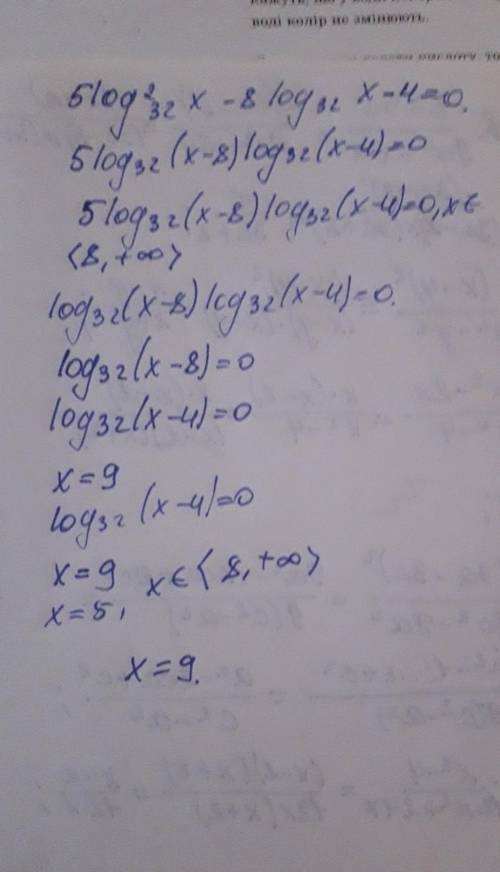 воді колір не змінюють.
5log²₃₂ x - 8 log₃₂ x - 4 = 0.
5log₃₂(x-8)log₃₂(x-4)=0
5log₃₂(x-8)log₃₂(x-4)=0, x∈
⟨8,+∞⟩
log₃₂(x-8)log₃₂(x-4)=0.
log₃₂(x-8)=0
log₃₂(x-4)=0
x=9
log₃₂(x-4)=0
x=9 x∈⟨8,+∞⟩
x=5,
x=9.